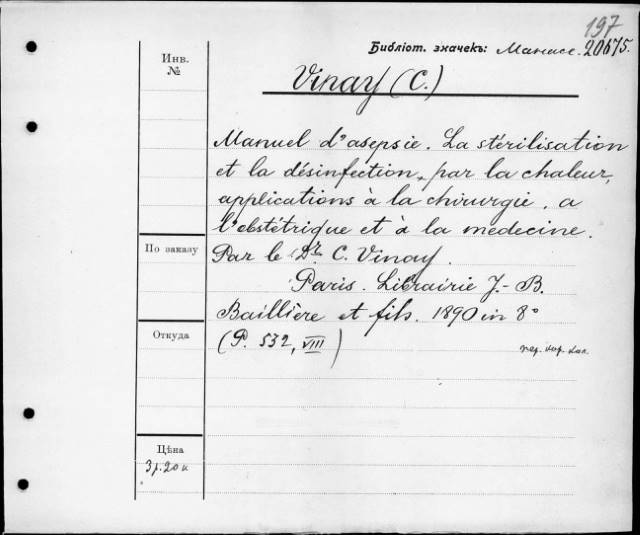 197
Библіот. значекъ: 20675.
Инв.
№
Vinay (C.)
Manuel d'asepsie. La stérilisation
et la désinfection, par la chaleur,
applications à la chirurgie. a
l'obstétrique et à la medecine.
По заказу
Par le Dr. C. Vinay.
Paris. Librairie J.-B.
Baillière et fils. 1890 in 8°
Откуда
(P. 532, VIII)
Цѣна
3 р. 20 к